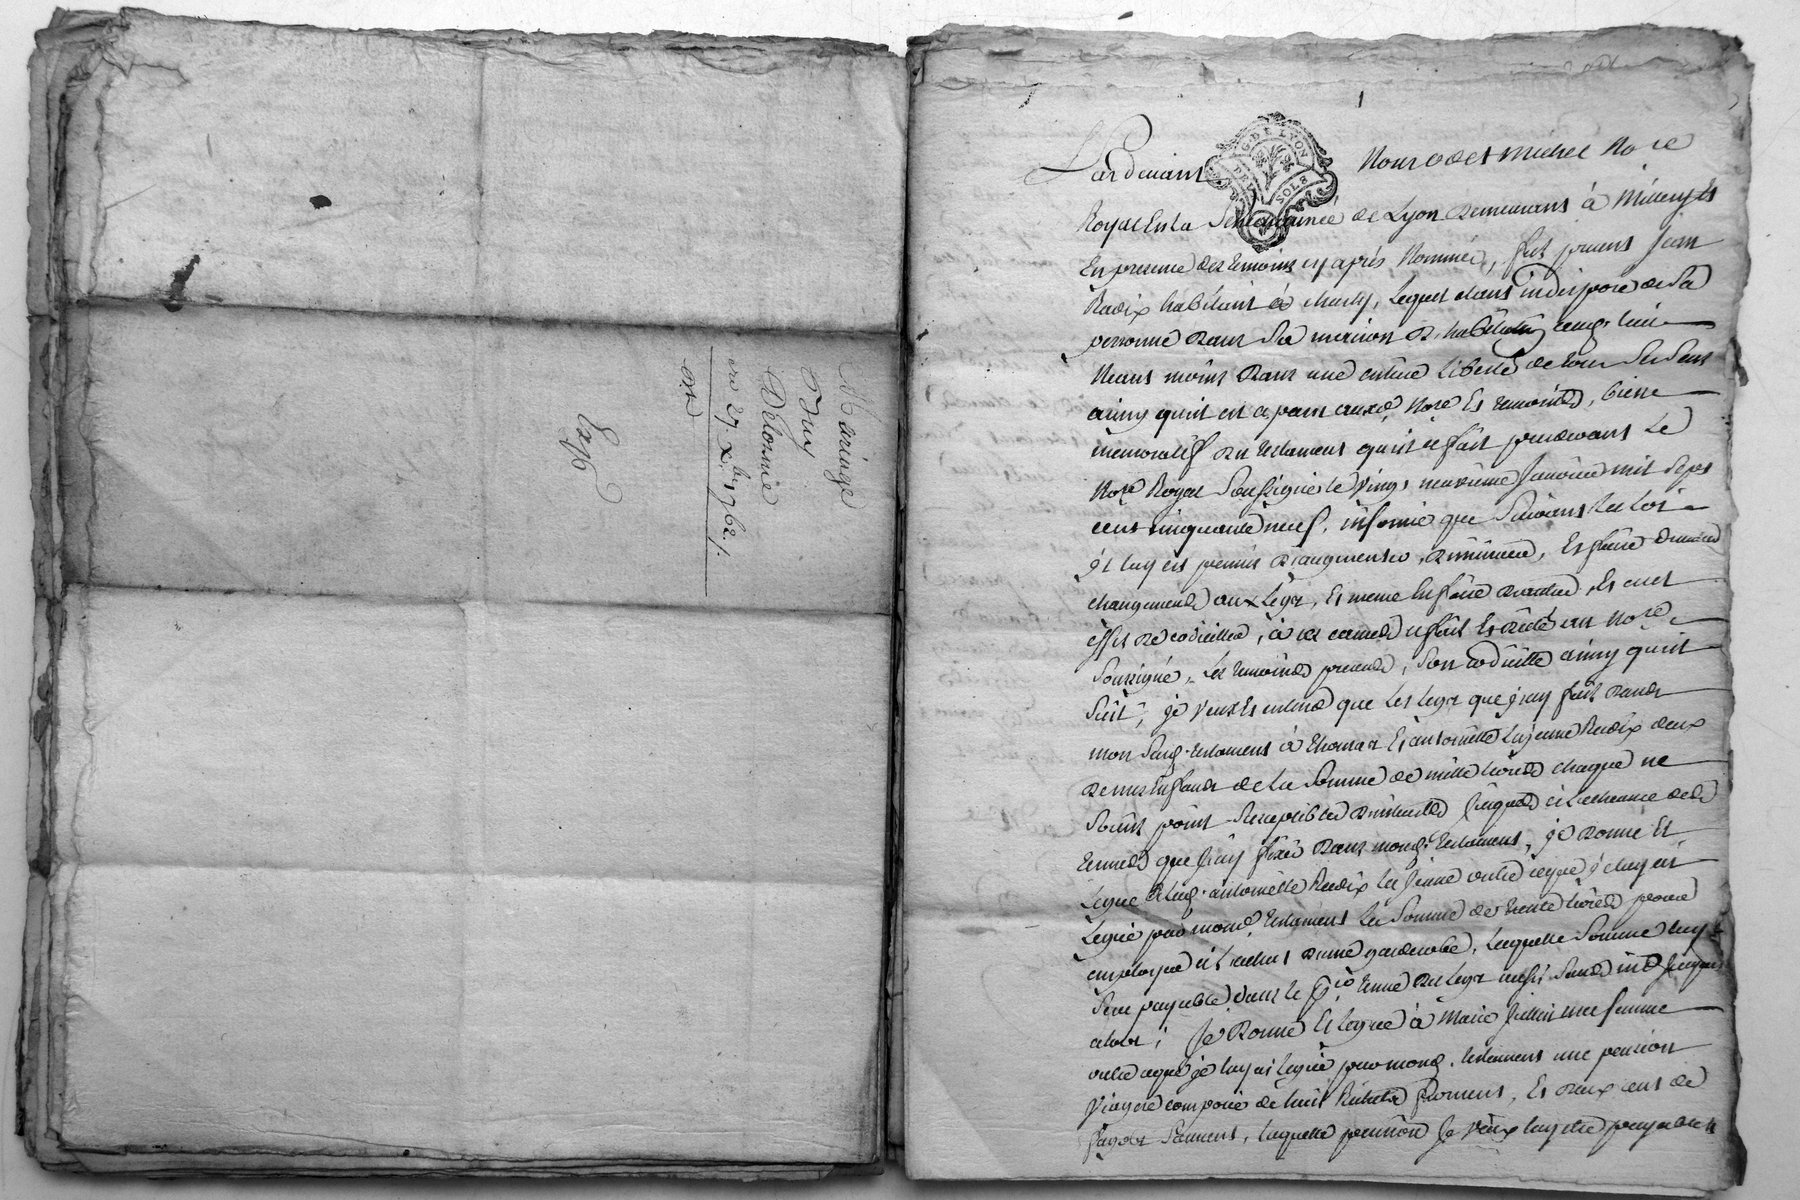 Mariage
Delorme
du 27 xbre 1762 /.
Exp
G. DE LYON
DEUX SOLS
Pardevant Nous Michel Nore
Royal En la Senechaussée de Lyon demeurant à Millery Et
En presence des temoins cy après Nommés, fut present Jean
Radix habitant à Charly, Lequel étant indisposé de Sa
personne dans Sa maison d'habitation
Neans moins dans une entiere Liberté de tous Ses Sens
ainsy qu'il est aparu auxd. Nore Et temoins, bien
memoratif du testament qu'il a fait pardevant Le
Nore Royal Soussigné le Vingt neuvieme Janvier mil Sept
cent cinquante neuf, informé que Suivant Les Loix
il luy est permis d'augmenter, diminuer, Et faire
changements aux Legs, Et meme En faire d'autres, Et
de codicilles, à ces causes a fait Et dicté au Nore
Soussigné, Les temoins presents, Son codicille ainsy qu'il
Suit; je veux Et entend que Les Legs que j'ay fait dans
mon Sud. testament à Thomas Et antoinette La jeune Radix deux
de mes Enfants de La Somme de mille Livres chaque ne
Soient point Susceptibles d'interets jusques à L'echeance des
termes que j'ay fixés dans mond. testament, je donne Et
Legue à Lad. antoinette Radix La jeune outre ce que je luy ai
Legué par mond. testament La Somme de trente Livres pour
employer à L'achat d'une garderobe, Laquelle Somme Luy
Sera payable dans le terme du Legs aussi Sans int. jusques
alors; Je donne Et Legue à Marie ma femme
outre ce que je luy ai Legué par mond. testament une pension
Viagere composée de huit Bichets froment, Et deux cent de
fagots Sarments, Laquelle pension Je veux luy etre payable